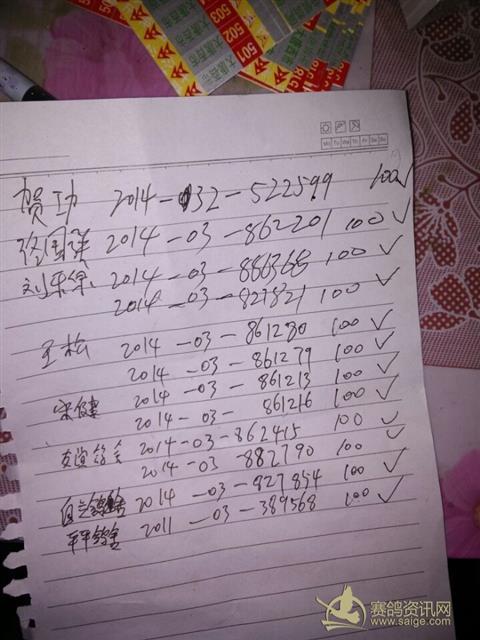 503
502
501
Mo Tu We Th Fr Sa Su
贺功 2014-032-522599 100✓
徐国祥 2014-03-862201 100✓
刘 2014-03-886368 100✓
2014-03-827821 100✓
王松 2014-03-861280 100✓
2014-03-861279 100✓
宋健 2014-03-861213 100✓
2014-03- 861216 100✓
友谊鸽舍 2014-03-862415 100✓
2014-03-882790 100✓
鸽舍 2014-03-827854 100✓
鸽舍 2011-03-389568 100✓
赛鸽资讯网
www.saige.com